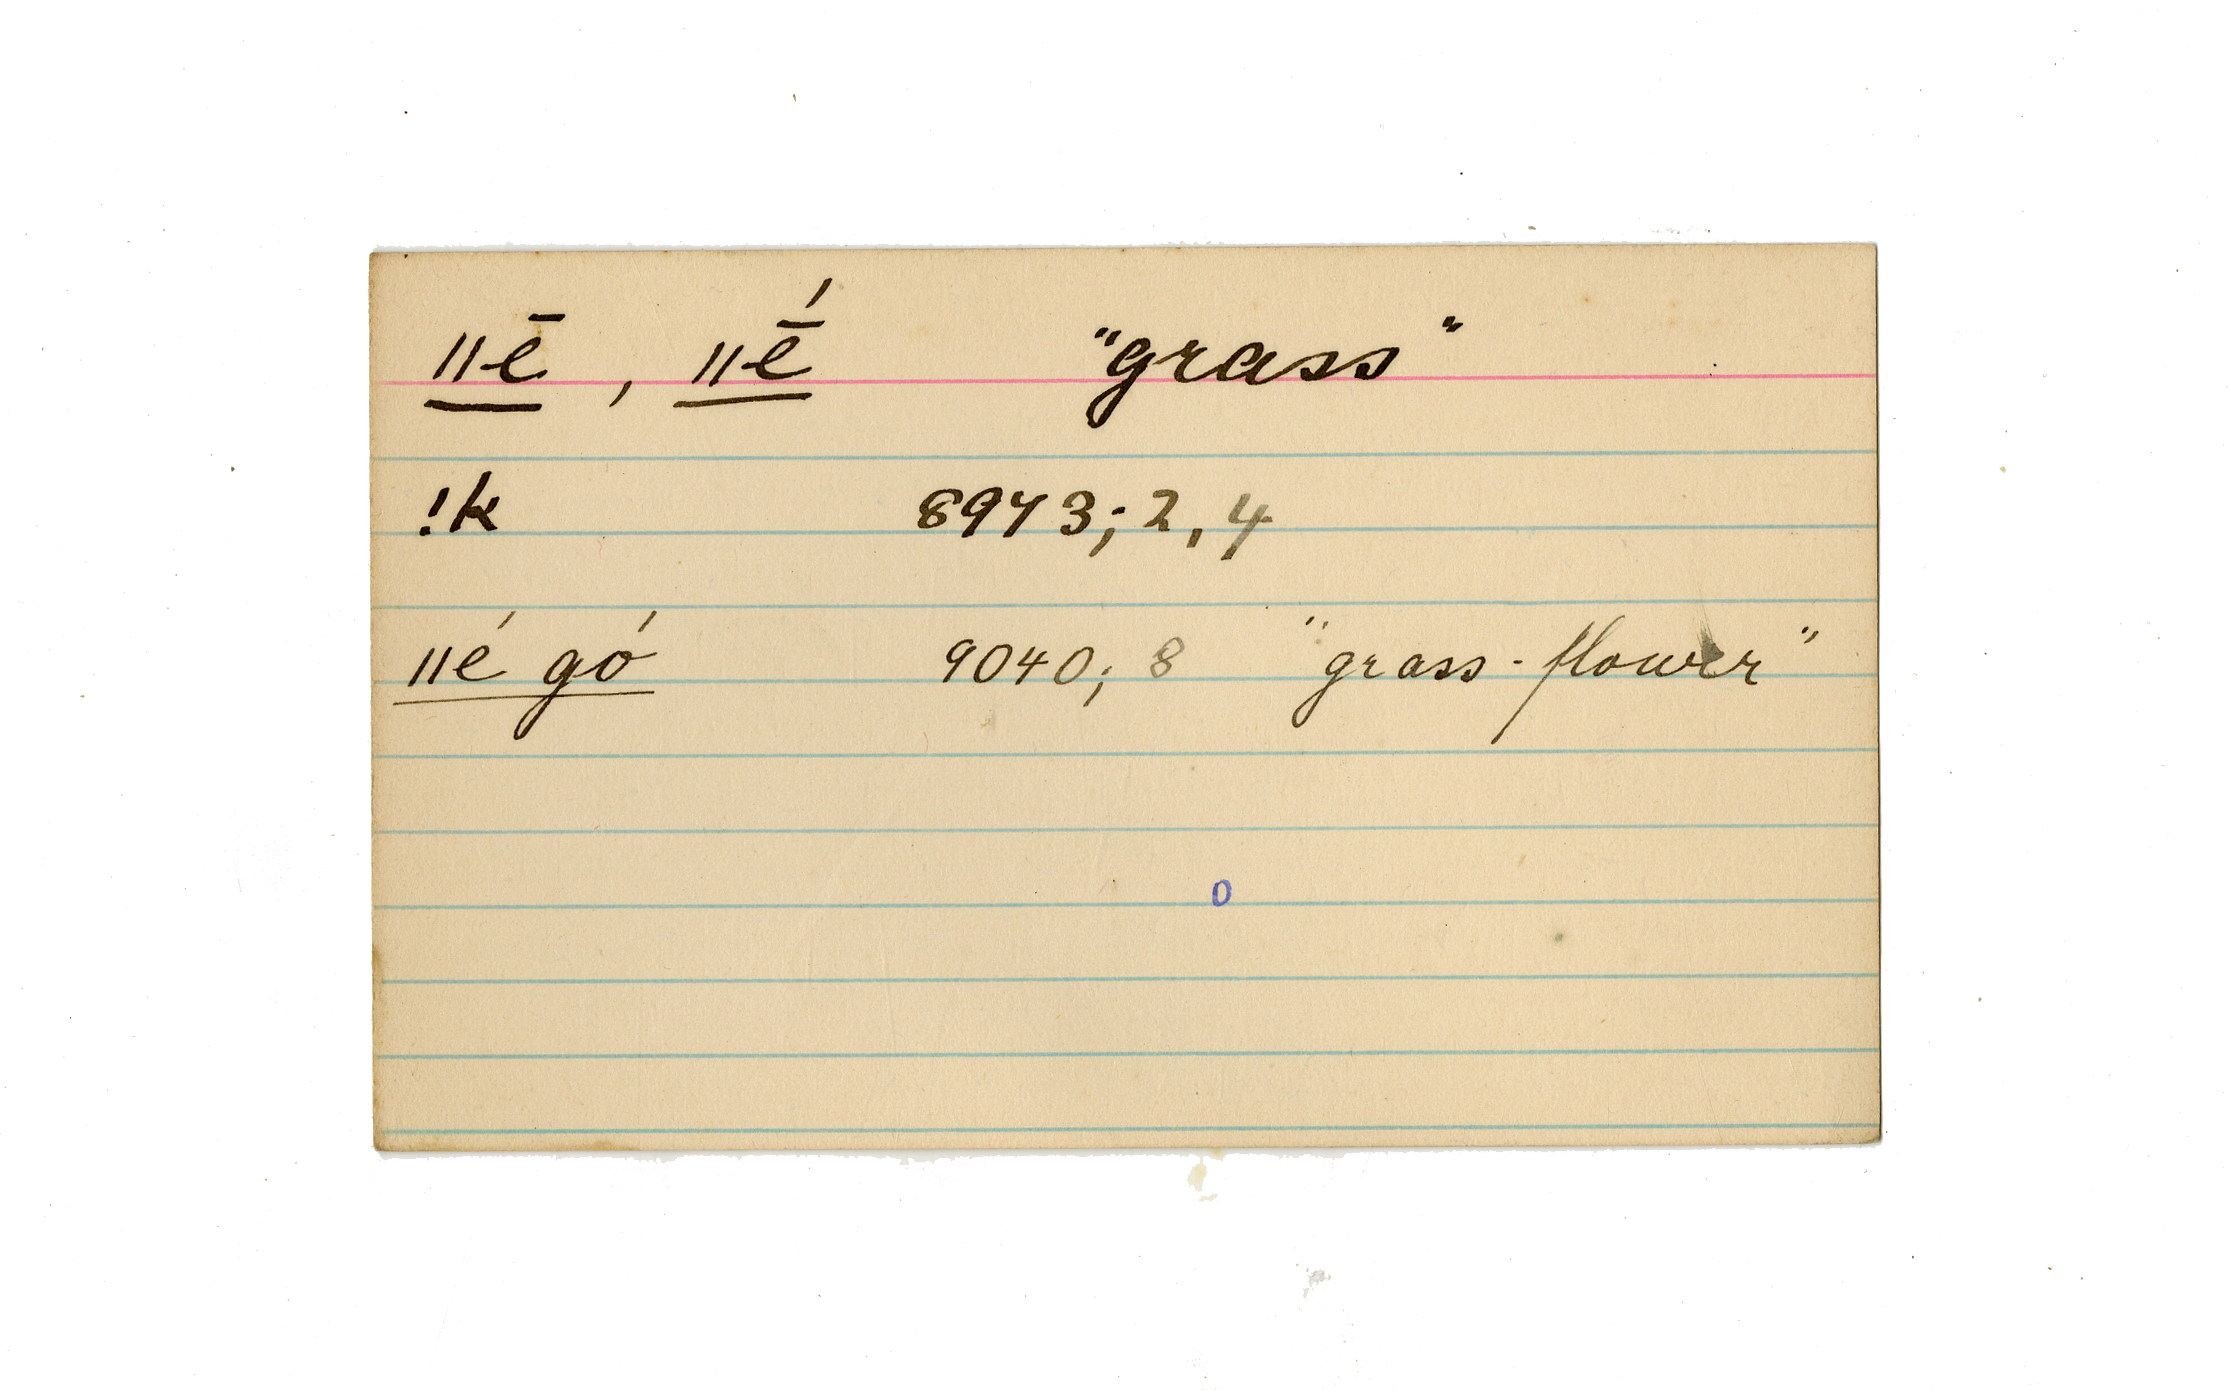 ǁē , ǁḗ "grass"
!k 8973; 2, 4
ǁé gó 9040; 8 "grass-flower"
0